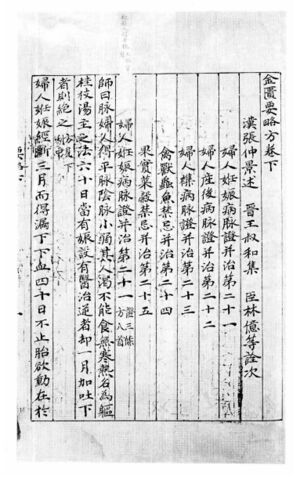 金匱要略方卷下
漢張仲景述 晋王叔和集 臣林億等詮次
婦人妊娠病脉證并治第二十
婦人産後病脉證并治第二十一
婦人雜病脉證并治第二十二
禽獸魚蟲禁忌并治第二十四
果實菜穀禁忌并治第二十五
婦人妊娠病脉證并治第二十 證三條 方八首
師曰脉婦人得平脉陰脉小弱其人渴不能食無寒熱名為軀
桂枝湯主之法六十日當有娠設有醫治逆者却一月加吐下
者則絶之
婦人妊娠經斷三月而得漏下下血四十日不止胎欲動在於